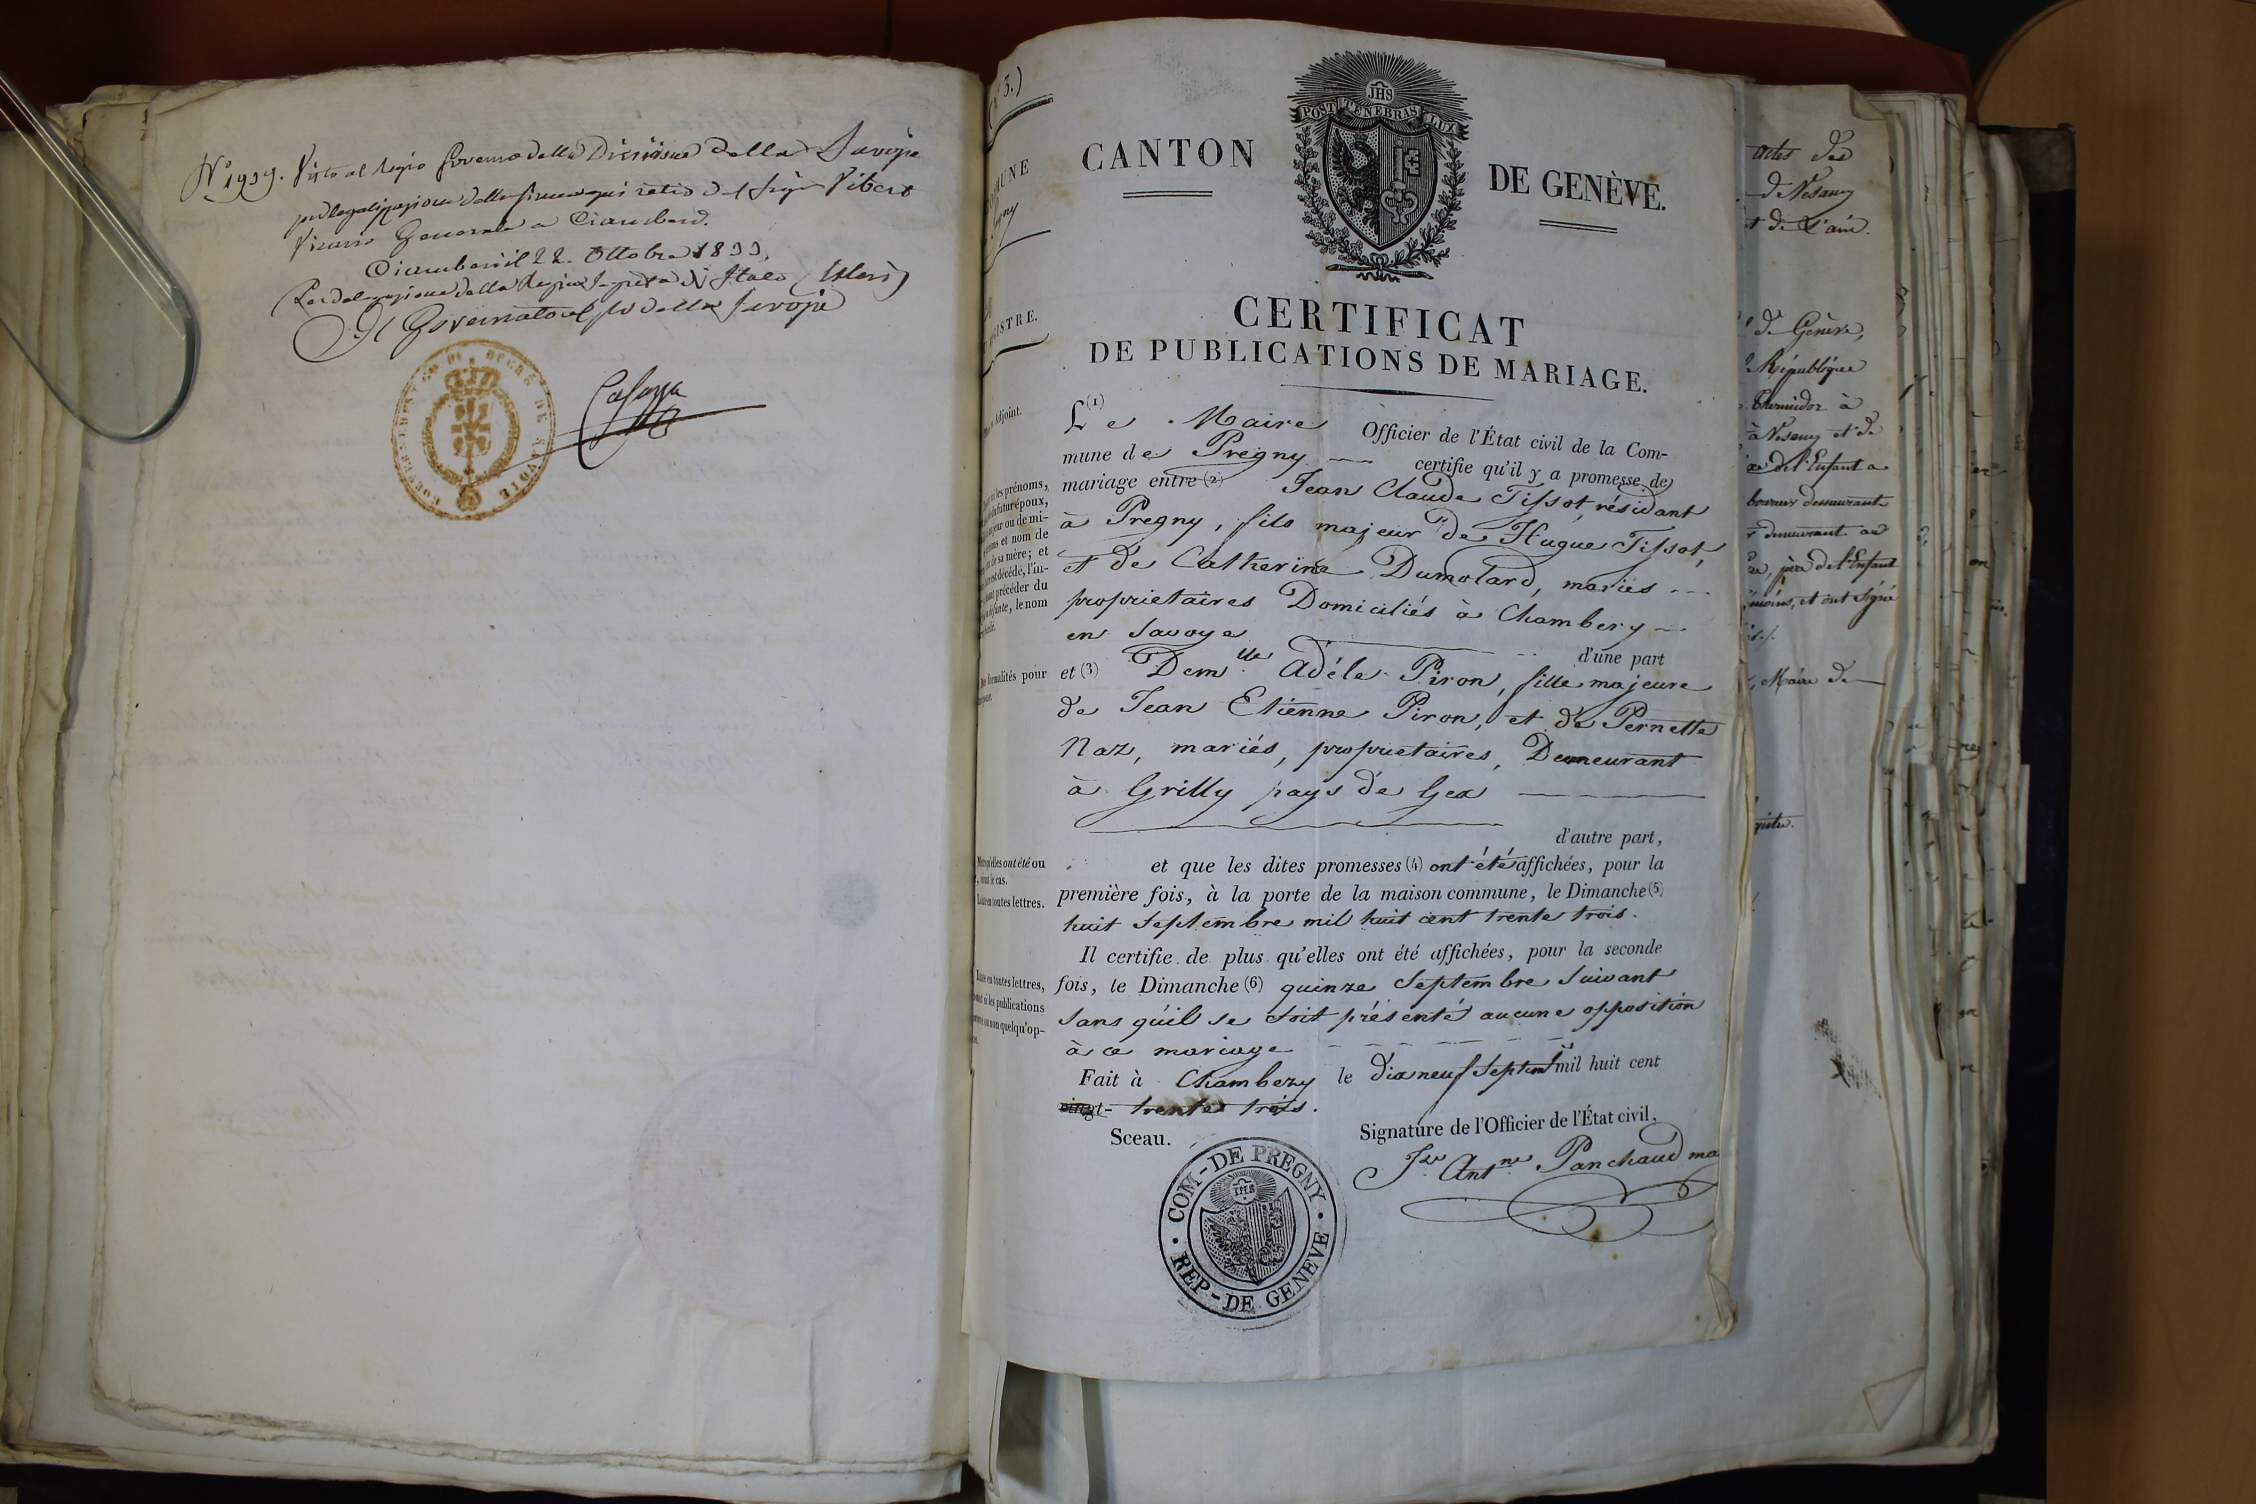 Visto al Regio Governo della Divisione della Savoja
per legalizzazione della firma qui retro del Sigr Vibert
Vicario Generale a Ciamberì.
Ciamberì il 22. Ottobre 1833.
Il Governatore della Savoja
GOUVERNEMENT DUCHÉ DE SAVOIE
3.)
CANTON DE GENÈVE.
JHS
POST TENEBRAS LUX
CERTIFICAT
DE PUBLICATIONS DE MARIAGE.
Le (1) Maire Officier de l'État civil de la Com-
mune de Pregny certifie qu'il y a promesse de
mariage entre (2) Jean Claude Tissot, résidant
à Pregny, fils majeur de Hugue Tissot
et de Catherine Dumolard, mariés
proprietaires Domiciliés à Chambery
en Savoye d'une part
et (3) Demlle Adéle Piron, fille majeure
de Jean Etienne Piron, et de Pernette
Naz, mariés, proprietaires, Demeurant
à Grilly pays de Gex
d'autre part,
et que les dites promesses (4) ont été affichées, pour la
première fois, à la porte de la maison commune, le Dimanche (5)
huit Septembre mil huit cent trente trois.
Il certifie de plus qu'elles ont été affichées, pour la seconde
fois, le Dimanche (6) quinze Septembre Suivant
Sans qu'il se Soit présenté aucune opposition
à ce mariage
Fait à Chambezy le dixneuf Septem mil huit cent
vingt- trente trois.
Sceau. Signature de l'Officier de l'État civil,
Antne Panchaud
COM-DE PREGNY
IHS
REP-DE GENEVE
Adjoint.
les prénoms,
futur époux,
ou de mi-
et nom de
de sa mère; et
décédé, l'in-
précéder du
défunte, le nom
formalités pour
qu'elles ont été ou
, suivant le cas.
en toutes lettres.
en toutes lettres,
si les publications
ou non quelqu'op-
actes des
et de l'an
de Genève,
République
Thermidor à
de l'Enfant
demeurant
demeurant au
père de l'Enfant
et ont Signé
Maire de